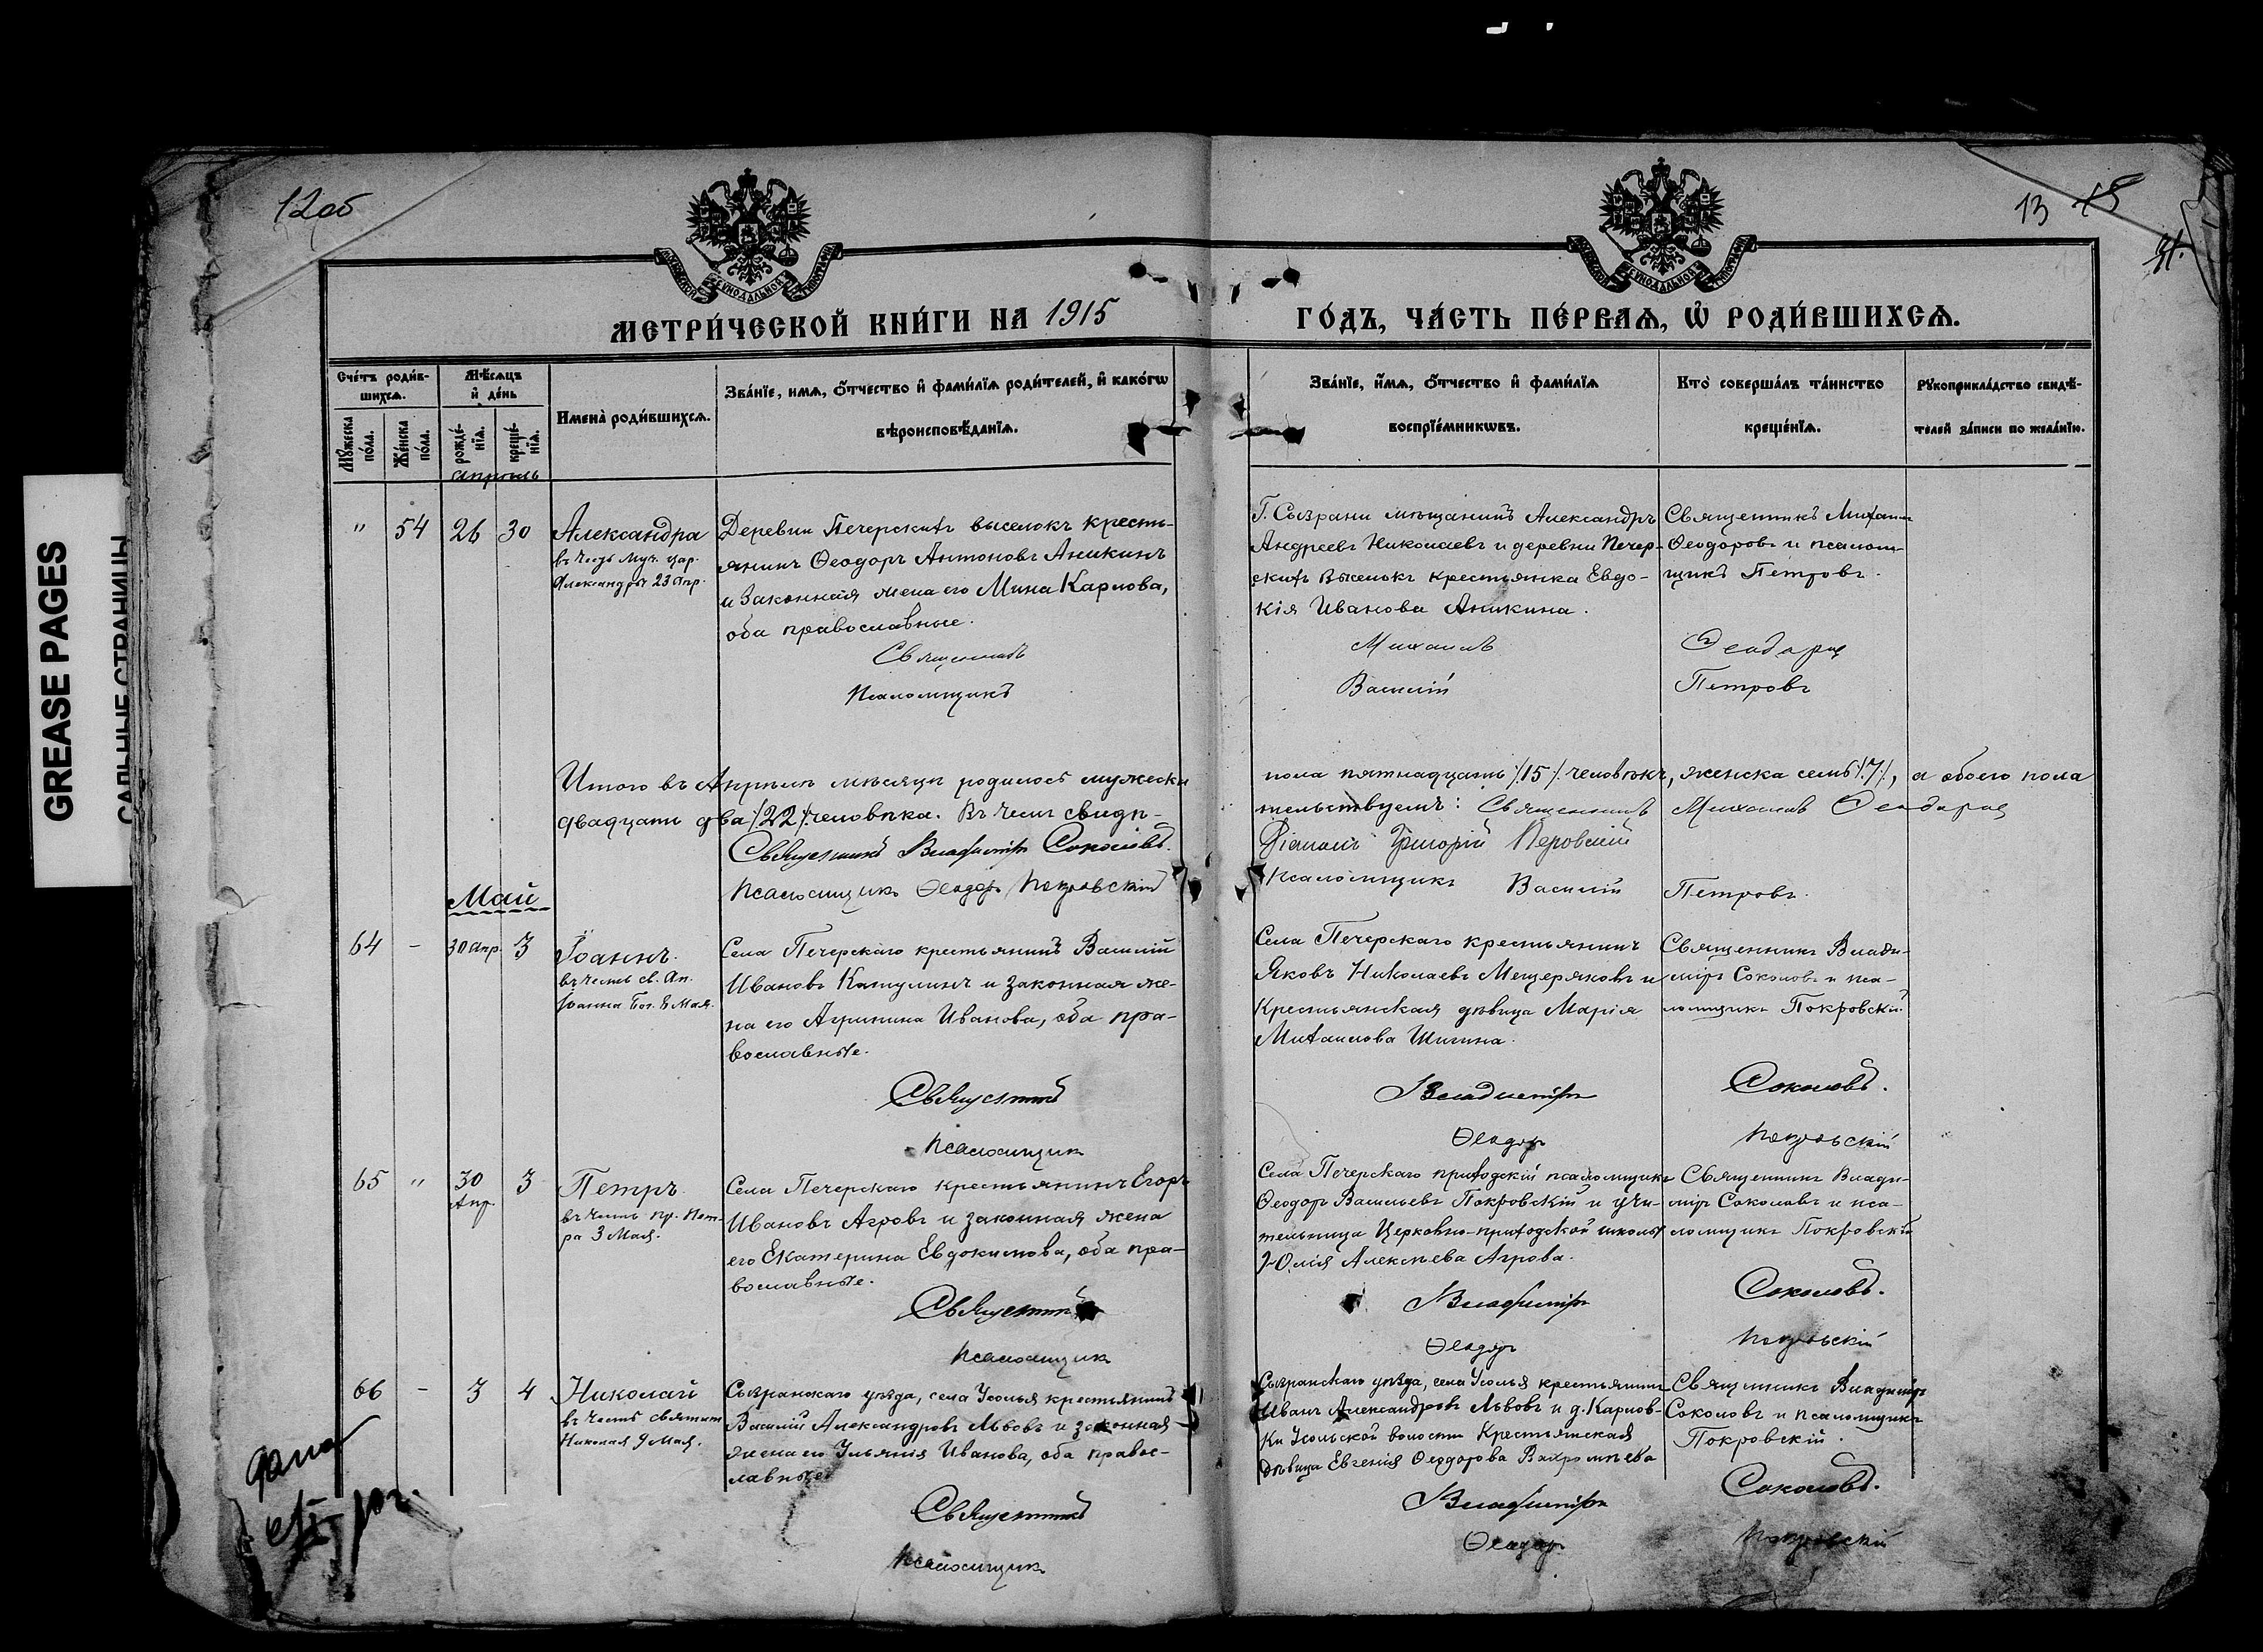 12об
13 15
31.
GREASE PAGES
САЛЬНЫЕ СТРАНИЦЫ
МЕТРИ́ЧЕСКОЙ КНИ́ГИ НА 1915
ГО́ДЪ, ЧА́СТЬ ПЕ́РВАѦ, Ѡ҆ РОДИ́ВШИХСѦ.
Сче́тъ роди́в-
шихсѧ.
Мꙋ́жеска по́ла.
Же́нска по́ла.
Мѣ́сѧцъ
и҆ де́нь
рожде́-
нїѧ.
креще́-
нїѧ.
Имена̀ роди́вшихсѧ.
Зва́нїе, имѧ, ѻ҆́тчество и҆ фами́лїѧ роди́телей, и҆ како́гѡ
вѣроисповѣ́данїѧ.
Зва́нїе, и҆́мѧ, ѻ҆́тчество и҆ фами́лїѧ
воспрїе́мникѡвъ.
Кто̀ соверша́лъ та́инство
креще́нїѧ.
Рꙋкоприкла́дство свидѣ́-
телей за́писи по жела́нїю.
апрѣль
" 54 26 30
Александра
въ честь муч. цар.
Александры 23 Апр.
Деревни Печерскихъ выселокъ кресть-
янинъ Ѳеодоръ Антоновъ Аникинъ
и законная жена его Мина Карпова,
оба православные.
Священникъ
Псаломщикъ
Г. Сызрани мѣщанинъ Александръ
Андреевъ Николаевъ и деревни Печер-
скихъ Выселокъ крестьянка Евдо-
кія Иванова Аникина.
Михаилъ
Василій
Священникъ Михаилъ
Ѳеодоровъ и псалом-
щикъ Петровъ.
Ѳеодоровъ
Петровъ
Итого въ Апрѣлѣ мѣсяцѣ родилось мужеска
двадцать два /22/ человѣка. Въ чемъ свидѣ-
Священникъ Владиміръ Соколовъ.
Псаломщикъ Ѳеодоръ Покровскій
пола пятнадцать /15/ человѣкъ, женска семь /7/, а обоего пола
тельствуемъ: Священникъ Михаилъ Ѳеодоровъ
Діаконъ Григорій
Псаломщикъ Василій Петровъ.
Май
64 - 30 апр. 3
Іоаннъ.
въ честь св. Ап.
Іоанна Бог. 8 Мая.
Села Печерскаго крестьянинъ Василій
Ивановъ Катулинъ и законная же-
на его Агрипина Иванова, оба пра-
вославные.
Священникъ
Псаломщикъ
Села Печерскаго крестьянинъ
Яковъ Николаевъ Мещеряковъ и
Крестьянская дѣвица Марія
Михаилова Шигина.
Владиміръ
Ѳеодоръ
Священникъ Влади-
міръ Соколовъ и пса-
ломщикъ Покровскій
Соколовъ.
Покровскій
65 " 30 Апр. 3
Петръ.
въ честь пр. Пет-
ра 3 Мая.
Села Печерскаго крестьянинъ Егоръ
Ивановъ Агровъ и законная жена
его Екатерина Евдокимова, оба пра-
вославные.
Священникъ
Псаломщикъ
Села Печерскаго приходскій псаломщикъ
Ѳеодоръ Васильевъ Покровскій и учи-
тельница Церковно-приходской школы
Юлія Алексѣева Агрова.
Владиміръ
Ѳеодоръ
Священникъ Влади-
міръ Соколовъ и пса-
ломщикъ Покровскій
Соколовъ.
Покровскій
66 - 3 4
Николай
въ честь святит.
Николая 9 Мая.
Сызранскаго уѣзда, села Усолья крестьянинъ
Василій Александровъ Львовъ и законная
жена его Ульянія Иванова, оба правос-
лавные
Священникъ
Псаломщикъ
Сызранскаго уѣзда, села Усолья крестьянинъ
Иванъ Александровъ Львовъ и д. Карлов-
ки Усольской волости Крестьянская
дѣвица Евгенія Ѳеодорова Вахромѣева
Владиміръ
Ѳеодоръ
Священникъ Владиміръ
Соколовъ и псаломщикъ
Покровскій.
Соколовъ.
Покровскій